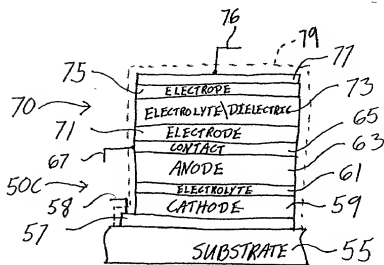 76
79
77
75
ELECTRODE
73
70
ELECTROLYTE\DIELECTRIC
71
ELECTRODE
65
CONTACT
67
63
ANODE
50C
61
ELECTROLYTE
58
CATHODE
59
57
SUBSTRATE
55